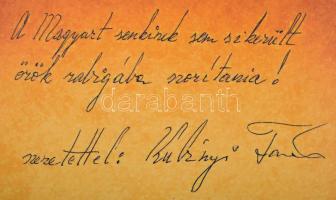 A Magyart senkinek sem sikerült
örök rabigába szorítania!
szeretettel: Kubinyi Tamás
darabanth